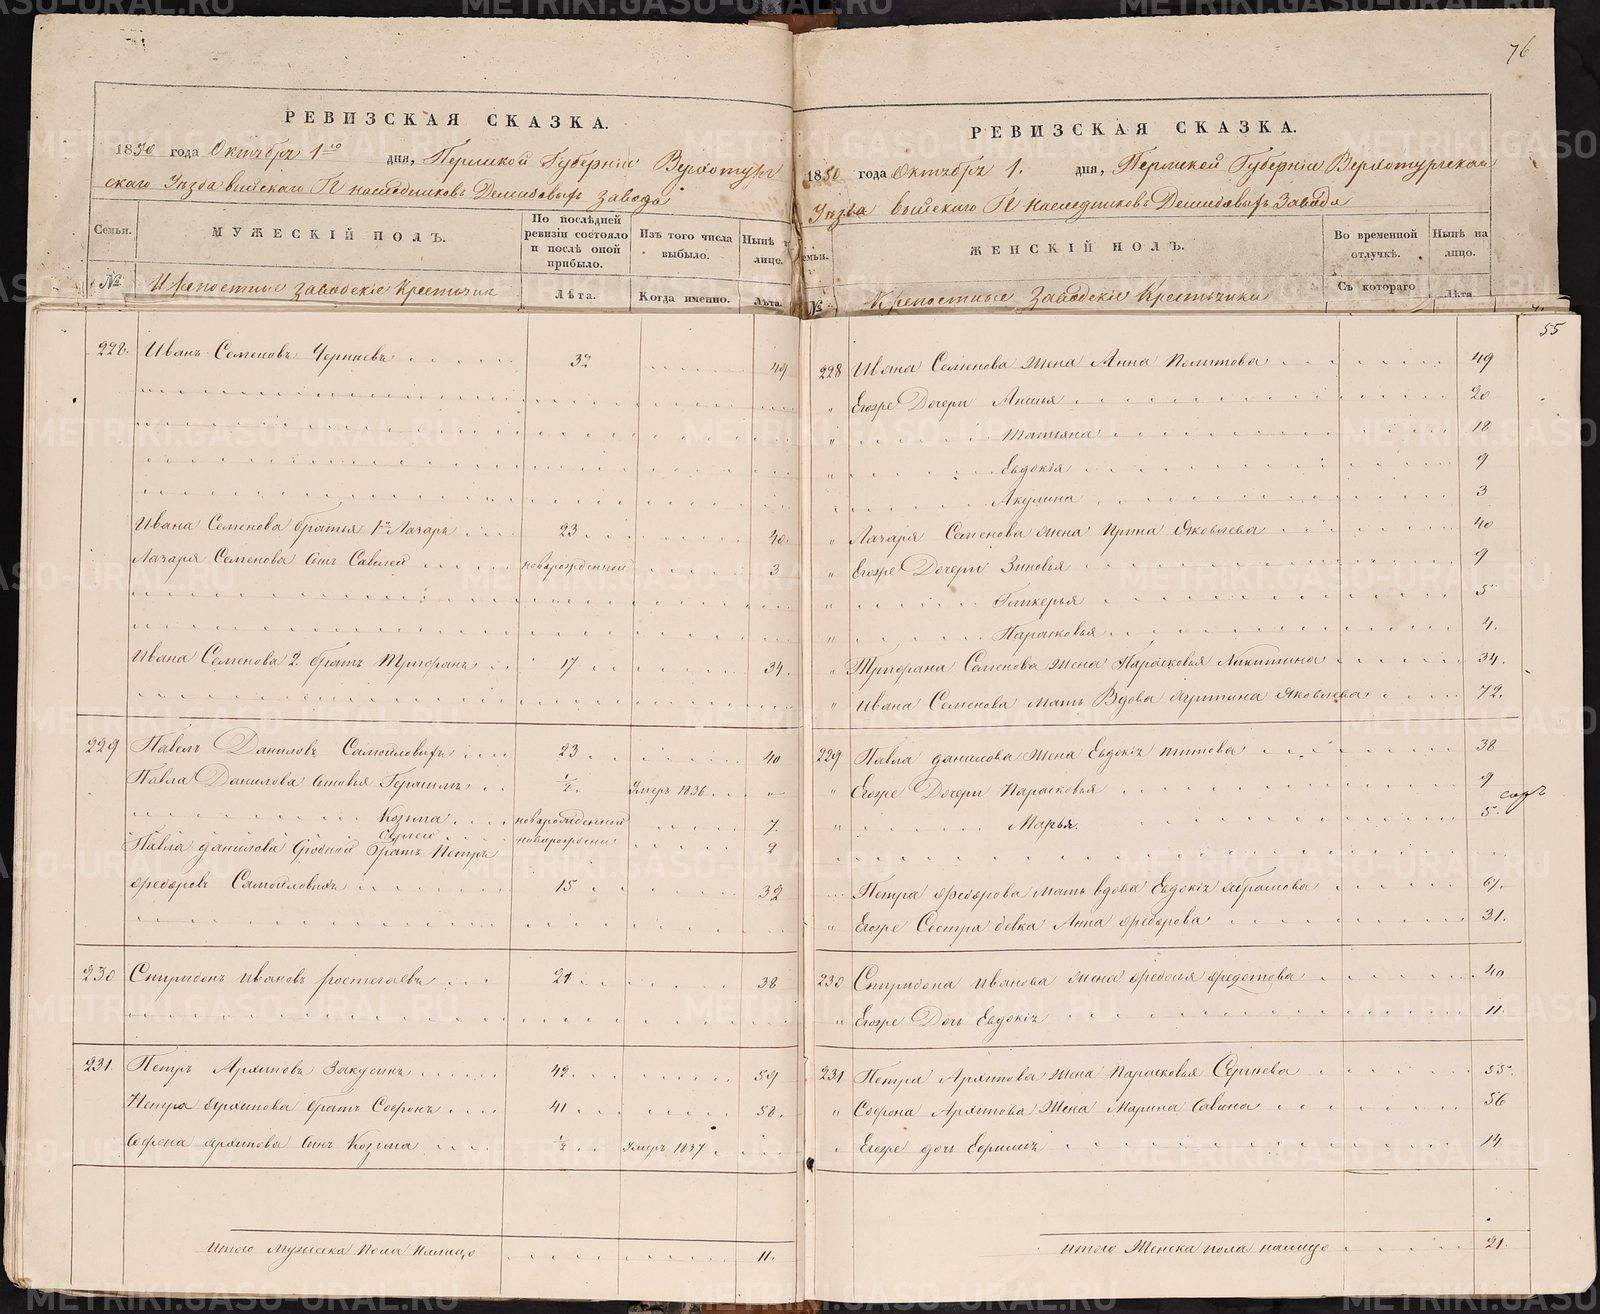 76
РЕВИЗСКАЯ СКАЗКА.
1850 года Октября 1го дня, Пермской Губерніи Верхотур
скаго Уезда выйскаго Г наследниковъ Демидовыхъ завода
Семьи.
МУЖЕСКІЙ ПОЛЪ.
По последней ревизіи состояло и после оной прибыло.
Изъ того числа выбыло.
Ныне на лицо.
№
Крепостные заводскіе Крестьяне
Лета.
Когда именно.
Лета.
228. Иванъ Семеновъ 32 49
Ивана Семенова братья 1й Лазарь 23 40.
Лазаря Семенова Сынъ Савелей новорожденной 3
Ивана Семенова 2. братъ Трифонъ 17 34.
229 Павелъ Даниловъ Самойловыхъ 23 40
Павла Данилова Сыновья Герасимъ 1/2. Умеръ 1836 "
Козьма новорожденный 7.
Сергей новорожденн 2
Павла Данилова Сродной братъ Петръ
Федоровъ Самойловыхъ 15 32
230 Спиридонъ Ивановъ 21 38
231. Петръ Архиповъ Закусинъ 42 59
Петра Архипова братъ Софонъ 41 58.
Софона Архипова Сынъ Козьма 1/2 Умеръ 1837
итого Мужеска Пола Налицо 11.
РЕВИЗСКАЯ СКАЗКА.
1850 года Октября 1. дня, Пермской Губерніи Верхотурскаго
Уезда Выйскаго Г наследниковъ Демидовыхъ Завода
Семьи.
ЖЕНСКІЙ ПОЛЪ.
Во временной отлучке.
Ныне на лицо.
№
Крепостные Заводскіе Крестьянки
Съ котораго
Лета
55
228 Ивана Семенова жена Анна 49
" Егоже Дочери Анисья 20
" Татьяна 18
" Евдокія 9
" Акулина 3
" Лазаря Семенова жена Ирина Яковлева 40
" Егоже Дочери Зиновья 9
" Гликерья 5
" Парасковья 4.
" Трифона Семенова жена Парасковья Никитина 34.
" Ивана Семенова Мать Вдова Яковлева 72.
229 Павла Данилова Жена Евдокія Титова 38
" Егоже Дочери Парасковья 9
" Марья. 5
Петра Федорова Мать вдова Евдокія Абрамова 67.
" Егоже Сестра девка Анна Федорова 31.
230 Спиридона Иванова жена Федосья Федотова 40
" Егоже Дочь Евдокія 11.
231 Петра Архипова Жена Парасковья Сергеева 55.
" Софона Архипова Жена Марина Савина 56
" Егоже дочь 14.
итого Женска пола налицо 21.
METRIKI.GASO-URAL.RU